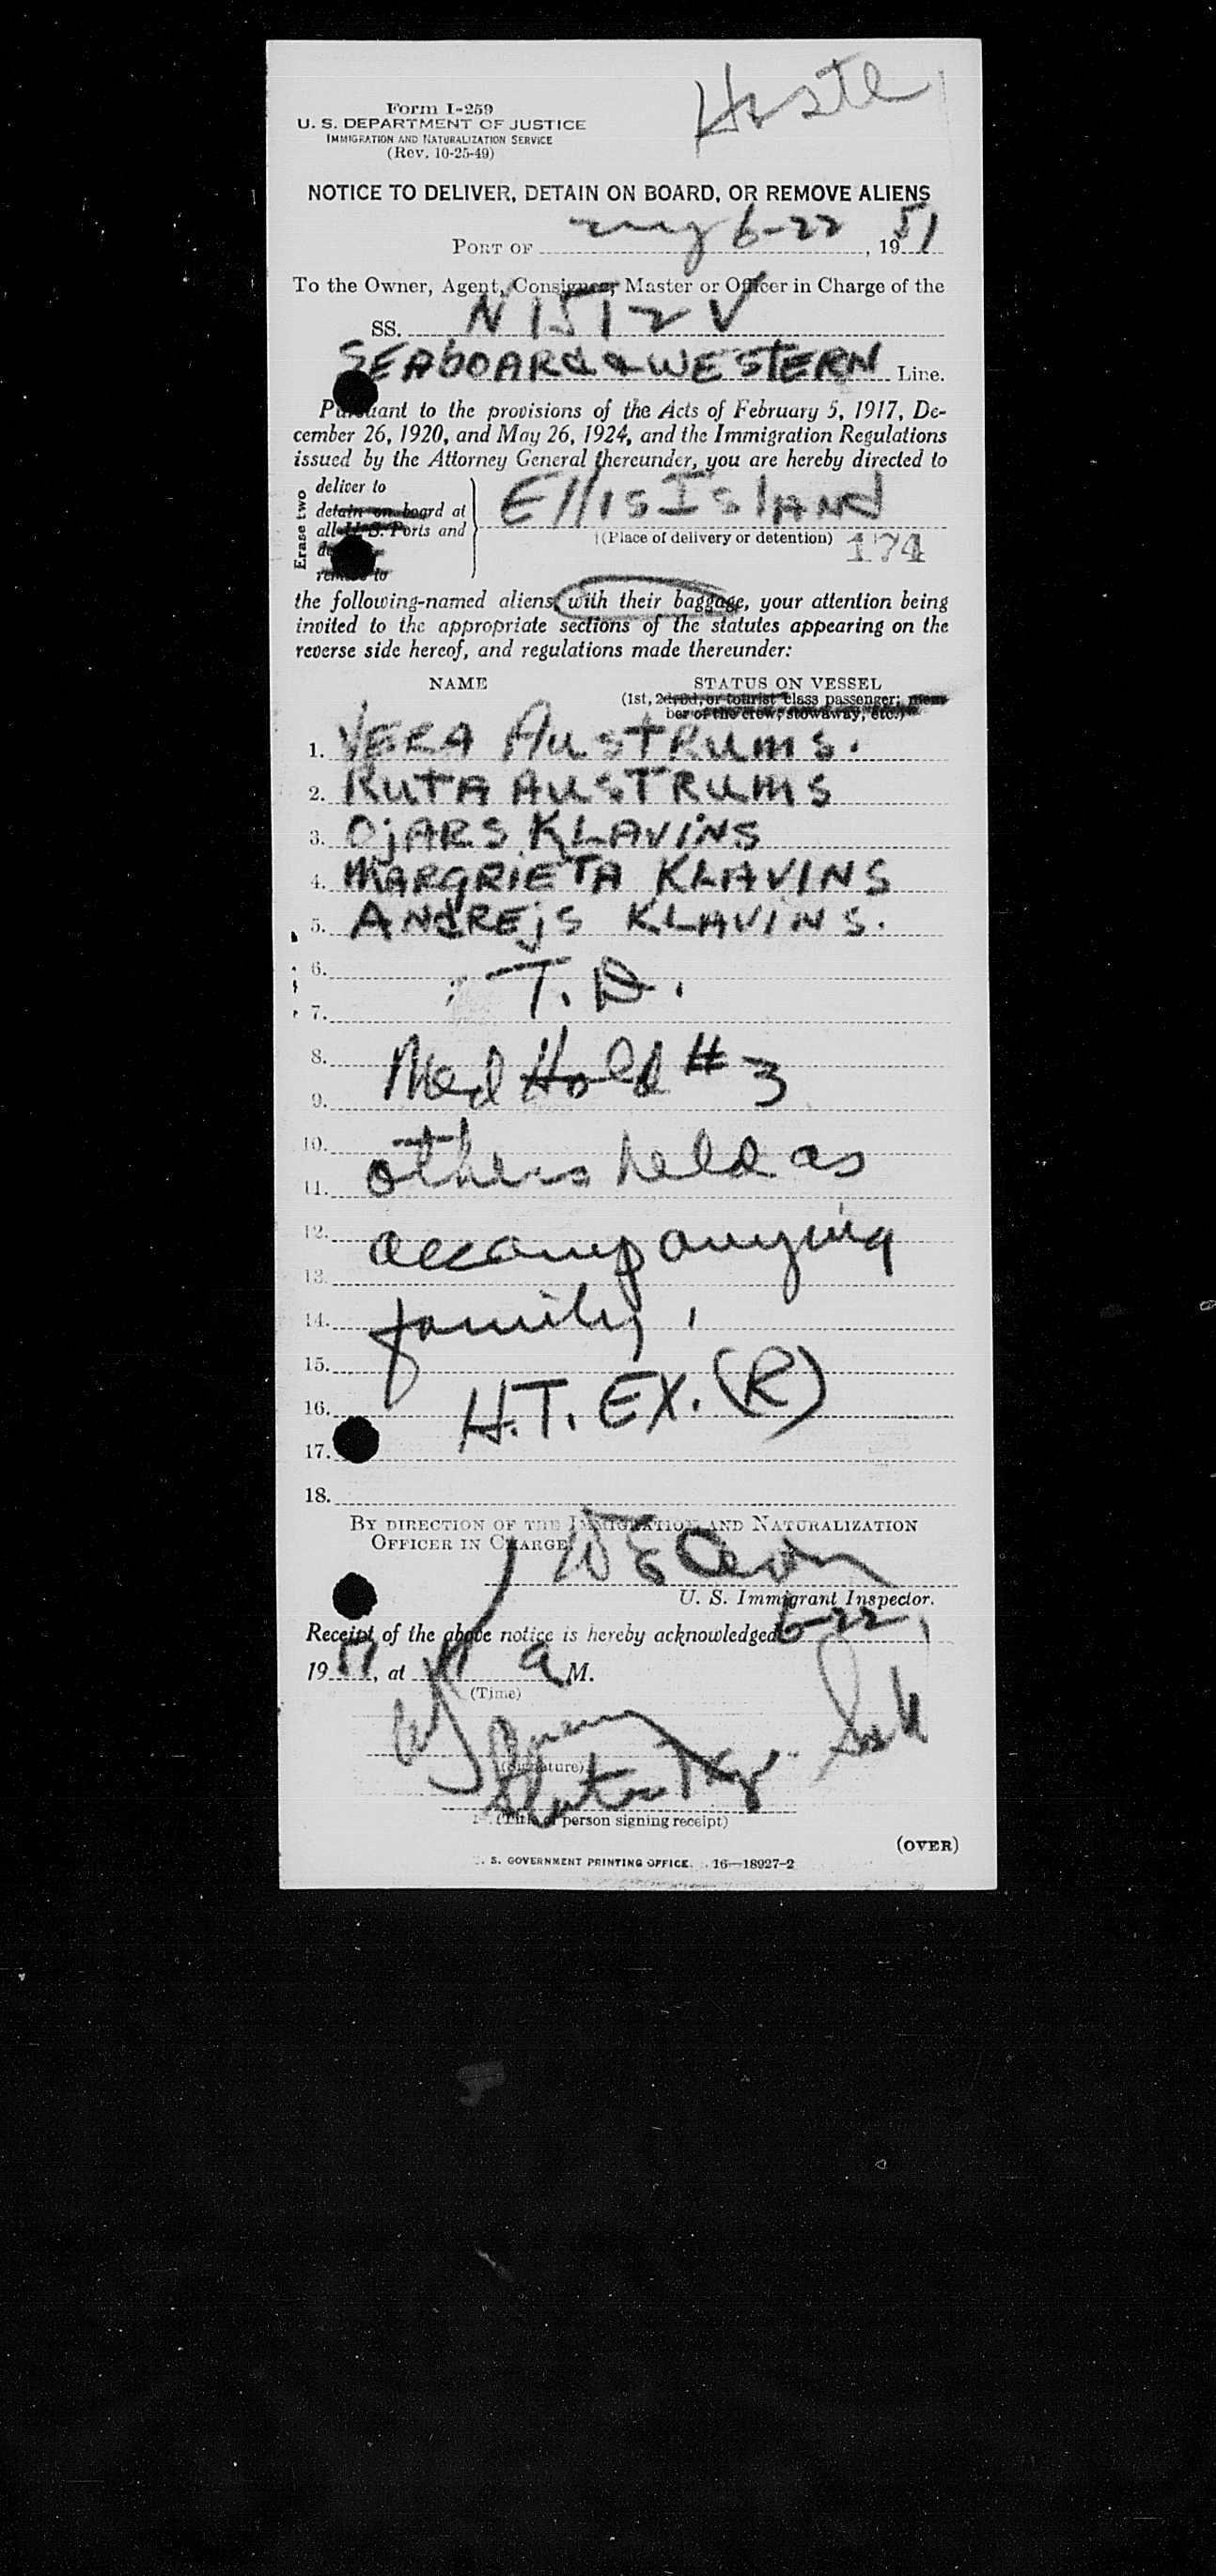 Form I-259
U. S. DEPARTMENT OF JUSTICE
IMMIGRATION AND NATURALIZATION SERVICE
(Rev. 10-25-49)
NOTICE TO DELIVER, DETAIN ON BOARD, OR REMOVE ALIENS
PORT OF 6-22, 1951
To the Owner, Agent, Consignee, Master or Officer in Charge of the
SS. N 1512 V
SEABOARd & WESTERN Line.
Pursuant to the provisions of the Acts of February 5, 1917, De-
cember 26, 1920, and May 26, 1924, and the Immigration Regulations
issued by the Attorney General thereunder, you are hereby directed to
Erase two
deliver to
detain on board at
all U. S. Ports and
remove to
Ellis IslANd
(Place of delivery or detention) 174
the following-named aliens, with their baggage, your attention being
invited to the appropriate sections of the statutes appearing on the
reverse side hereof, and regulations made thereunder:
NAME STATUS ON VESSEL
(1st, 2d, 3d, or tourist class passenger; mem-
ber of the crew; stowaway, etc.)
1. VERA AustRums.
2. RutA AusTRums
3. OjARS KLAViNS
4. MARGRIETA KLAVINS
5. ANdREjS KLAVINS.
6. T. D.
7.
8. Med Hold # 3
9.
10. others held as
11.
12. accompanying
13.
14. family.
15.
16. H.T. EX. (R)
17.
18.
BY DIRECTION OF THE IMMIGRATION AND NATURALIZATION
OFFICER IN CHARGE,
U. S. Immigrant Inspector.
Receipt of the above notice is hereby acknowledged 6-22,
1951, at a M.
(Time)
(Signature)
(Title of person signing receipt)
(OVER)
U. S. GOVERNMENT PRINTING OFFICE. 16—18927-2